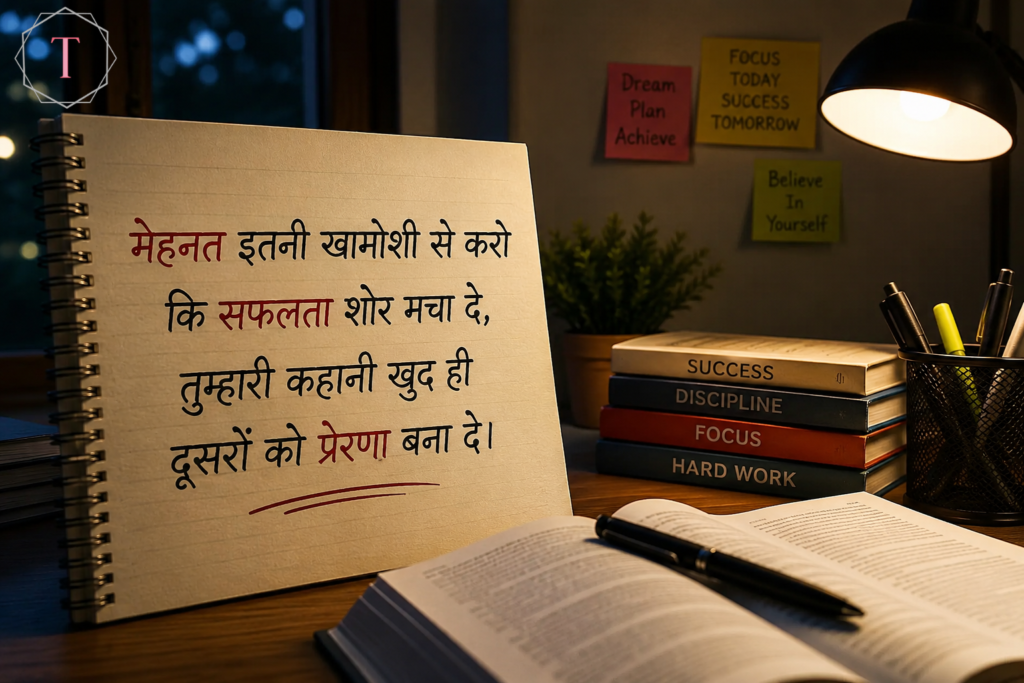 T
मेहनत इतनी खामोशी से करो
कि सफलता शोर मचा दे,
तुम्हारी कहानी खुद ही
दूसरों को प्रेरणा बना दे।
Dream
Plan
Achieve
FOCUS
TODAY
SUCCESS
TOMORROW
Believe
In
Yourself
SUCCESS
DISCIPLINE
FOCUS
HARD WORK